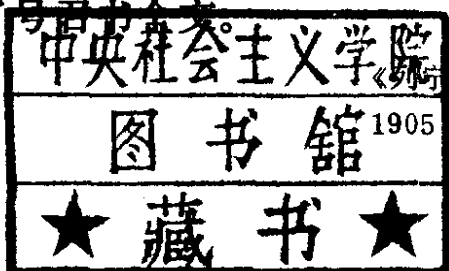 中央社会主义学院
图书馆
1905
★藏书★